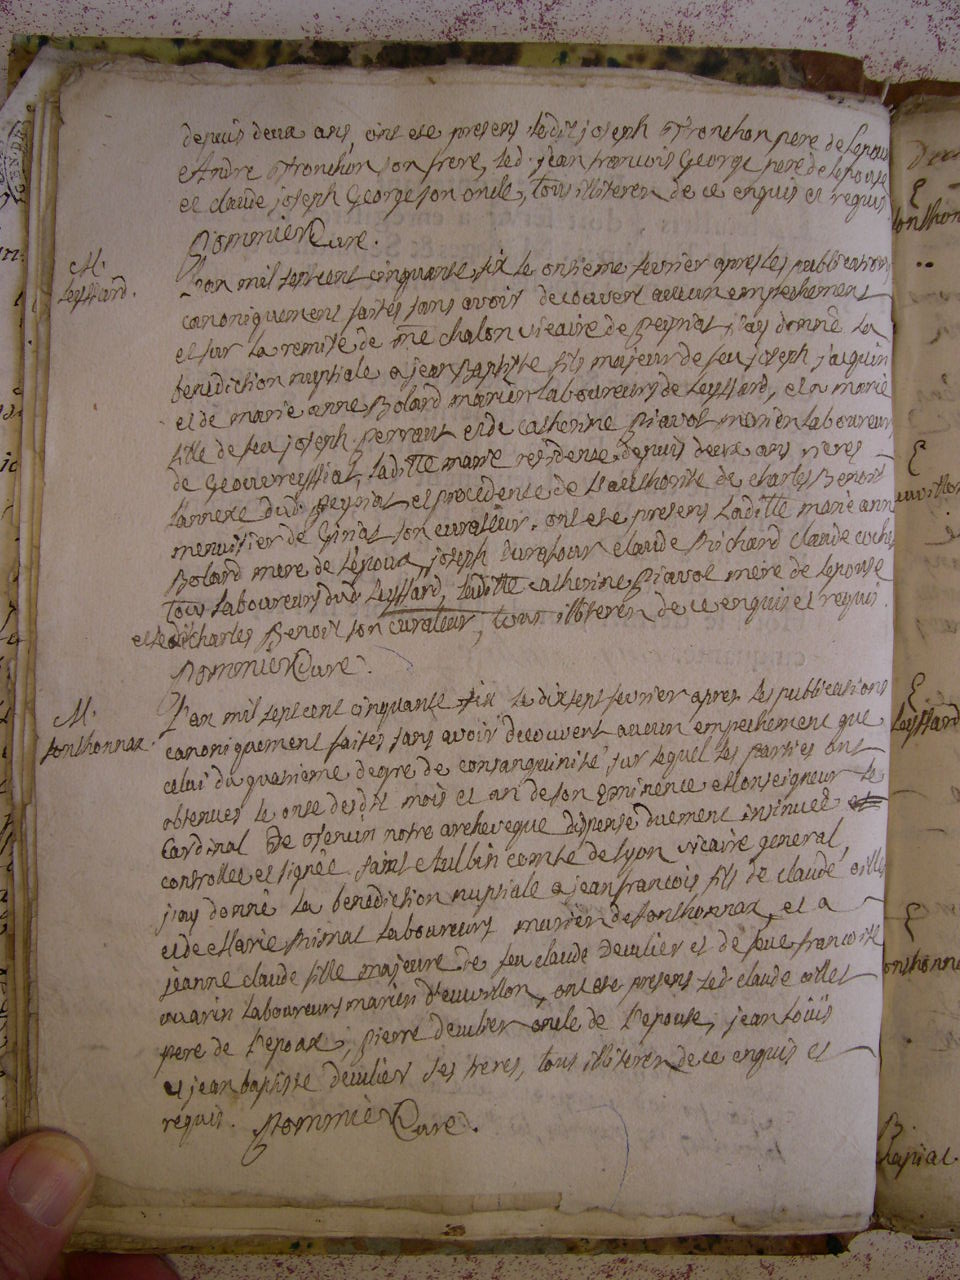 depuis deux ans, ont ete presens ledit joseph Tronchon pere de lepoux
Andre Tronchon son frere, led. jean francois George pere de lepouse
et claude joseph George son oncle, tous illiteres de ce enquis et requis
Pommier Curé.
M.
Leyssard.
L'an mil sept cent cinquante six le onsieme fevrier apres les publications
canoniquement faites sans avoir decouvert aucun empechement
et sur la remise de me chalon vicaire de Peyriat j'ay donné la
benediction nuptiale a jean Baptiste fils majeur de feu joseph jaiquin
et de marie anne Bolard mariés Laboureurs de Leyssard, et a marie
fille de feu joseph perraut et de catherine Piavol mariés Laboureurs
de Geovreyssiat, laditte marie residente depuis deux ans rieres
L'annexe dud. Peyriat et procedente de L'authorite de charles Benoit
menuisier de Siriat son curateur. ont ete presens Laditte marie anne
Bolard mere de L'epoux, joseph Durafour claude Richard claude cochet
tous Laboureurs dud. Leyssard, laditte catherine Piavol mere de lepouse
et ledit charles Benoit son curateur, tous illiteres de ce enquis et requis.
Pommier Curé.
M.
sonthonnax.
L'an mil sept cent cinquante six le dixsept fevrier apres les publications
canoniquement faites sans avoir decouvert aucun empechement que
celui du quatrieme degre de consanguinité, sur lequel les parties ont
obtenues le onse desdit mois et an de son Eminence Monseigneur le
Cardinal De Tencin notre archeveque dispense duement insinuée
controllée et signée. saint Aulbin comte de Lyon vicaire general,
j'ay donné la benediction nuptiale a jean francois fils de claude oillet
et de Marie Primat Laboureurs mariés de sonthonnax, et a
jeanne claude fille majeure de feu claude Deculier et de feue francoise
ouarin Laboureurs mariés d'euvillon, ont ete presens led. claude oillet
pere de l'epoux, Pierre deculier oncle de l'epouse, jean Loüis
et jean baptiste deculier ses freres, tous illiteres de ce enquis et
requis. Pommier Curé.
sonthonn
Leyssard
onthonna
B.
chapiat